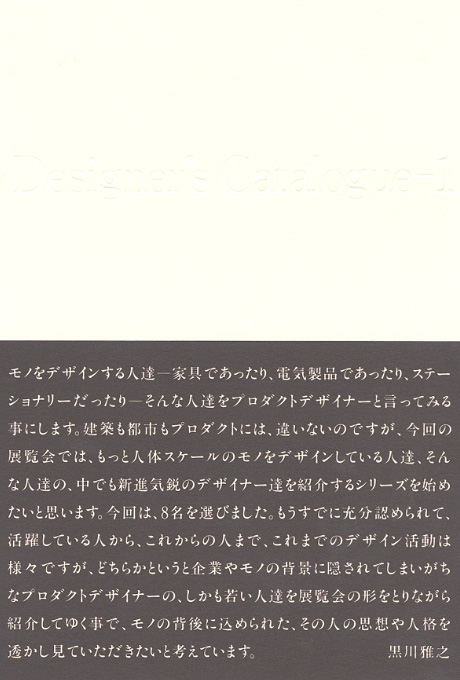 Designer's Catalogue-1
モノをデザインする人達―家具であったり、電気製品であったり、ステー
ショナリーだったり―そんな人達をプロダクトデザイナーと言ってみる
事にします。建築も都市もプロダクトには、違いないのですが、今回の
展覧会では、もっと人体スケールのモノをデザインしている人達、そん
な人達の、中でも新進気鋭のデザイナー達を紹介するシリーズを始め
たいと思います。今回は、8名を選びました。もうすでに充分認められて、
活躍している人から、これからの人まで、これまでのデザイン活動は
様々ですが、どちらかというと企業やモノの背景に隠されてしまいがち
なプロダクトデザイナーの、しかも若い人達を展覧会の形をとりながら
紹介してゆく事で、モノの背後に込められた、その人の思想や人格を
透かし見ていただきたいと考えています。 黒川雅之